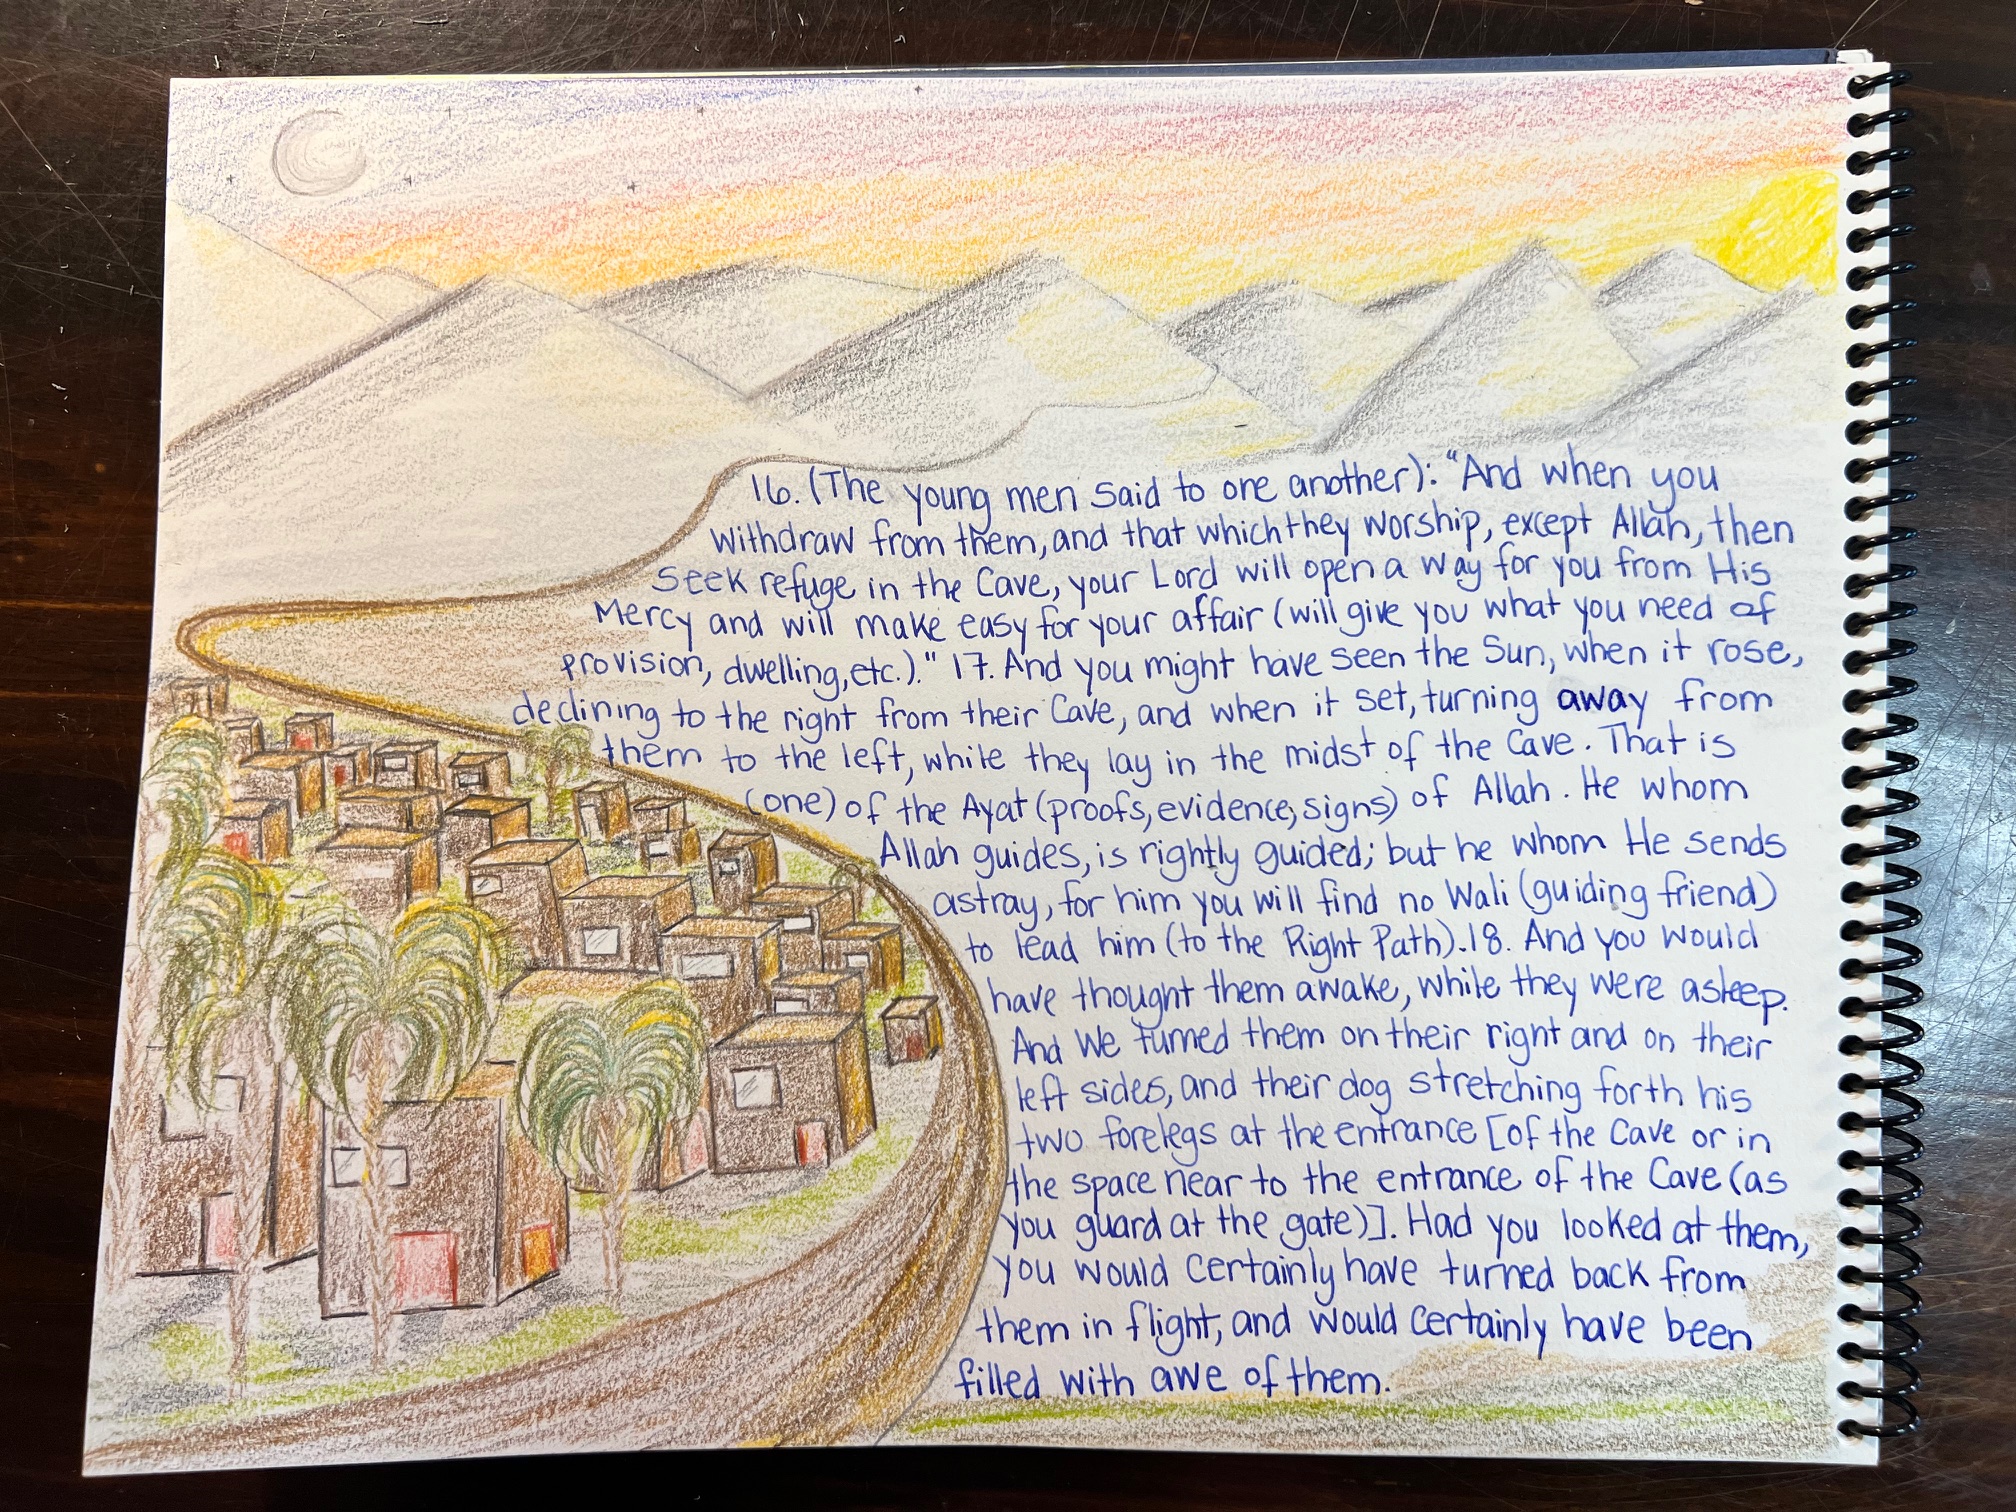 16. (The young men said to one another): "And when you
withdraw from them, and that which they worship, except Allah, then
seek refuge in the Cave, your Lord will open a way for you from His
Mercy and will make easy for your affair (will give you what you need of
provision, dwelling, etc.)." 17. And you might have seen the Sun, when it rose,
declining to the right from their Cave, and when it set, turning away from
them to the left, while they lay in the midst of the Cave. That is
(one) of the Ayat (proofs, evidence, signs) of Allah. He whom
Allah guides, is rightly guided; but he whom He sends
astray, for him you will find no Wali (guiding friend)
to lead him (to the Right Path). 18. And you would
have thought them awake, while they were asleep.
And We turned them on their right and on their
left sides, and their dog stretching forth his
two forelegs at the entrance [of the Cave or in
the space near to the entrance of the Cave (as
you guard at the gate)]. Had you looked at them,
you would certainly have turned back from
them in flight, and would certainly have been
filled with awe of them.